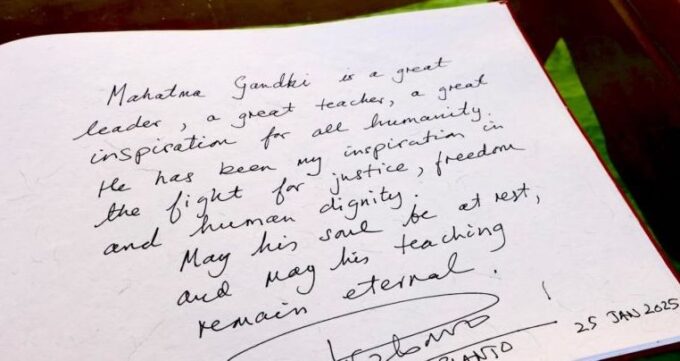 Mahatma Gandhi is a great
leader, a great teacher, a great
inspiration for all humanity.
He has been my inspiration in
the fight for justice, freedom
and human dignity.
May his soul be at rest,
and may his teaching
remain eternal.
25 JAN 2025